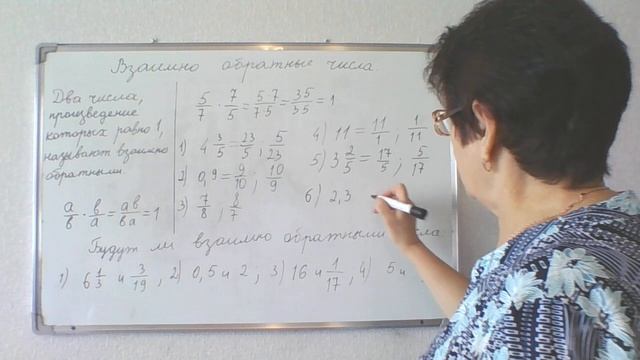 Взаимно обратные числа.
Два числа,
произведение
которых равно 1,
называют взаимно
обратными.
a/в · в/a = aв/вa = 1
5/7 · 7/5 = 5·7/7·5 = 35/35 = 1
1) 4 3/5 = 23/5 ; 5/23
2) 0,9 = 9/10 ; 10/9
3) 7/8 ; 8/7
4) 11 = 11/1 ; 1/11
5) 3 2/5 = 17/5 ; 5/17
6) 2,3
Будут ли взаимно обратными числа
1) 6 1/3 и 3/19 , 2) 0,5 и 2 ; 3) 16 и 1/17 , 4) 5 и